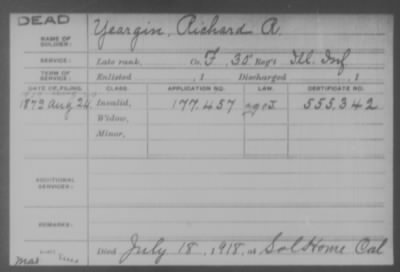 DEAD
NAME OF SOLDIER: Yeargin, Richard A.
SERVICE: Late rank, Co. F, 30 Reg't Ill. Inf
TERM OF SERVICE: Enlisted , 1 Discharged , 1
DATE OF FILING. CLASS. APPLICATION NO. LAW. CERTIFICATE NO.
1879 Aug 24 Invalid, 177,457 555,342
Widow,
Minor,
ADDITIONAL SERVICES:
REMARKS:
Died July 18, 1918, at Sol Home Cal